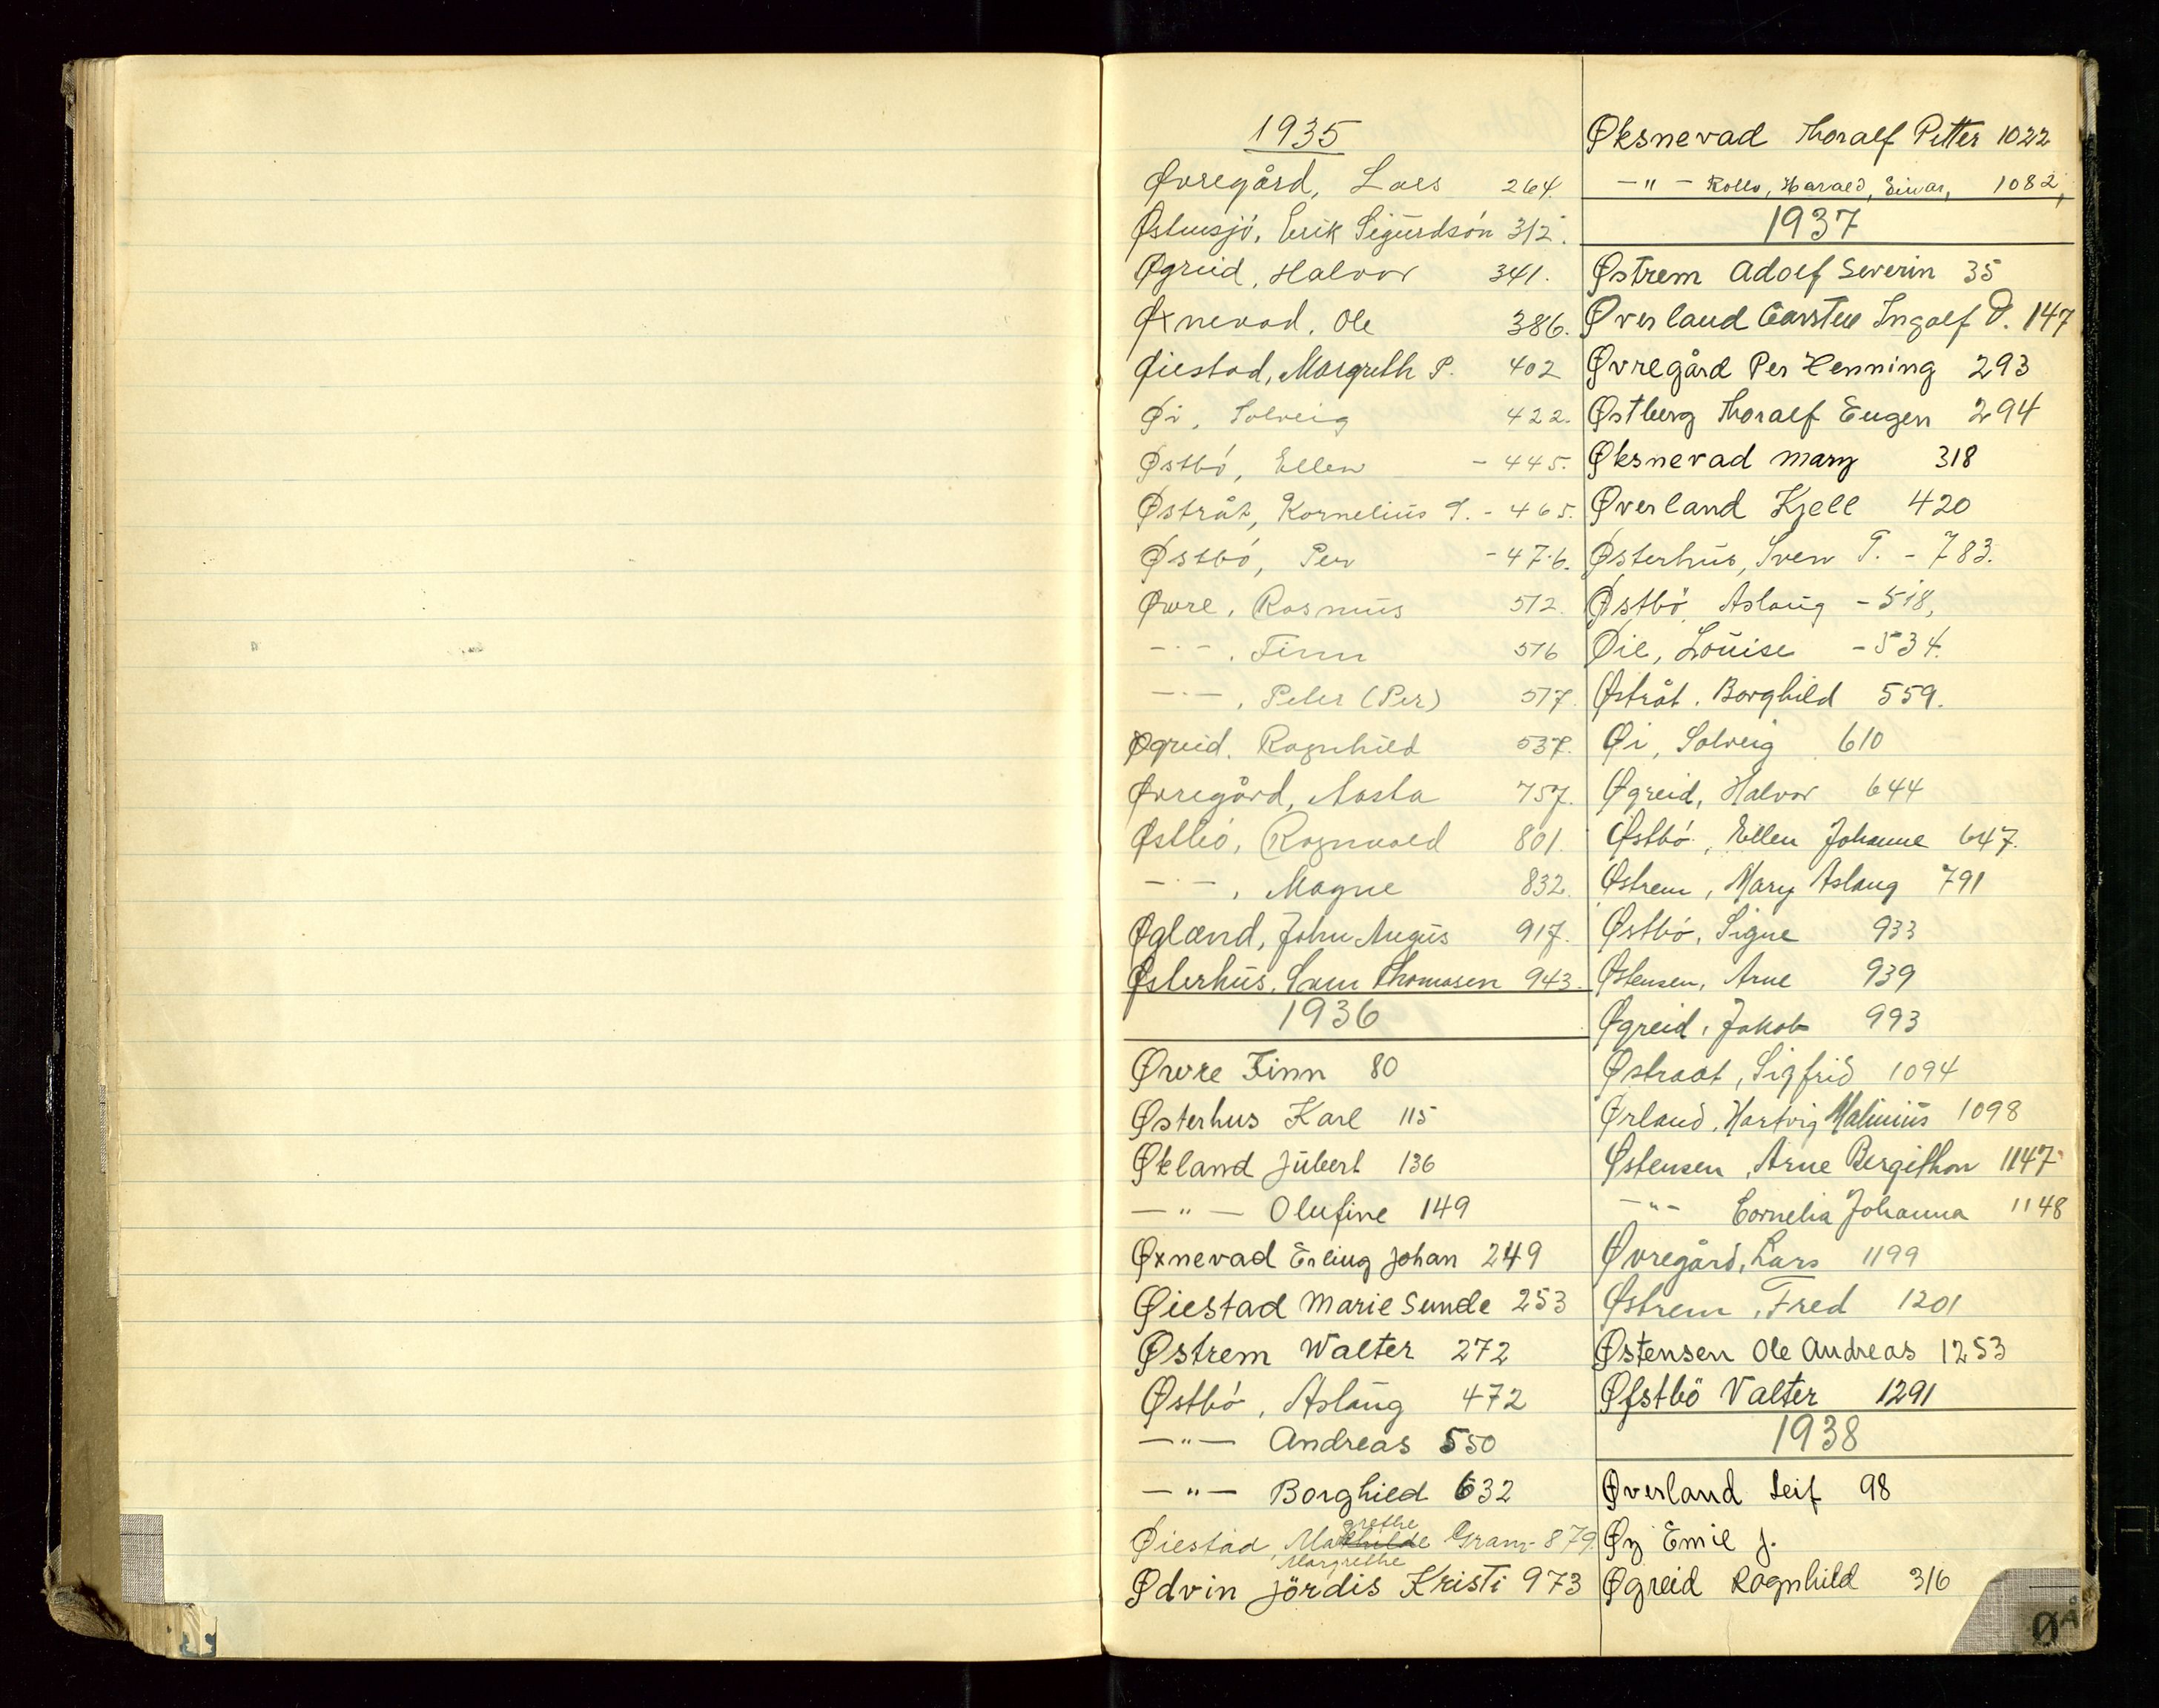 1935
Øvregård, Lars 264.
Østensjö, Erik Sigurdsön 312.
Øgreid, Halvor 341.
Øxnevad, Ole 386.
Øiestad, Margreth P. 402
Øi, Solveig 422.
Østbö, Ellen - 445.
Østråt, Kornelius T. - 465.
Østbö, Per - 476.
Øvre, Rasmus 512.
— · — , Finn 516
— · — , Peter (Per) 517.
Øgreid, Ragnhild 537.
Øvregård, Aasta 757.
Østbö, Ragnvald 801.
— · — , Magne 832.
Øglænd, John Magus 917.
Østerhus, Sven Thomasen 943.
1936
Øvre Finn 80
Østerhus Karl 115
Økland Jübert 136
— " — Olufine 149
Øxnevad Erling Johan 249
Øiestad Marie Sunde 253
Østrem Walter 272
Østbö, Aslaug 472
— " — Andreas 550
— " — Borghild 632
grethe
Øiestad, Mathilde Gram - 879.
Margrethe
Ødvin Jördis Kristi 973
Øksnevad Thoralf Petter 1022
— " — Rolls, Harald, Einar, 1082,
1937
Østrem Adolf Severin 35
Øverland Carsten Ingolf P. 147
Øvregård Per Henning 293
Østberg Thoralf Eugen 294
Øksnevad Mary 318
Øverland Kjell 420
Østerhus, Sven T. - 783.
Østbö Aslaug - 518,
Øie, Louise - 534.
Østråt. Borghild 559.
Øi, Solveig 610
Øgreid, Halvor 644
Østbö, Ellen Johanne 647.
Østrem, Mary Aslaug 791
Østbö, Signe 933
Østensen, Arne 939
Øgreid, Jakob 993
Østraat, Sigfrid 1094
Ørland, Hartvig Malinius 1098
Østensen, Arne Bergithon 1147
— " — Cornelia Johanna 1148
Øvregård, Lars 1199
Østrem, Fred 1201
Østensen Ole Andreas 1253
Øfstbö Valter 1291
1938
Øverland Leif 98
Øy Emil J.
Øgreid Ragnhild 316
ØÅ